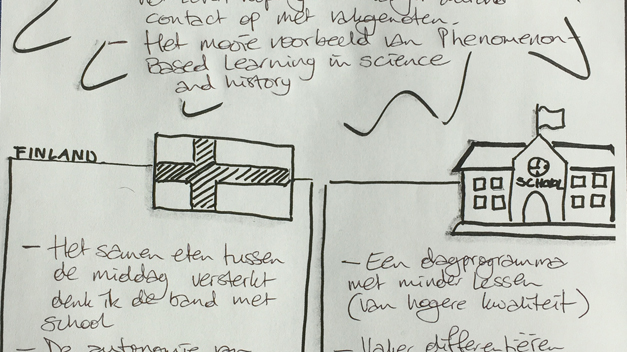 contact op met vakgenoten.
- Het mooie voorbeeld van Phenomenon-
Based Learning in science
and history
FINLAND
SCHOOL
- Het samen eten tussen
de middag versterkt
denk ik de band met
school
- De autonomie van
- Een dagprogramma
met minder lessen
(van hogere kwaliteit)
- Vaker differentiëren